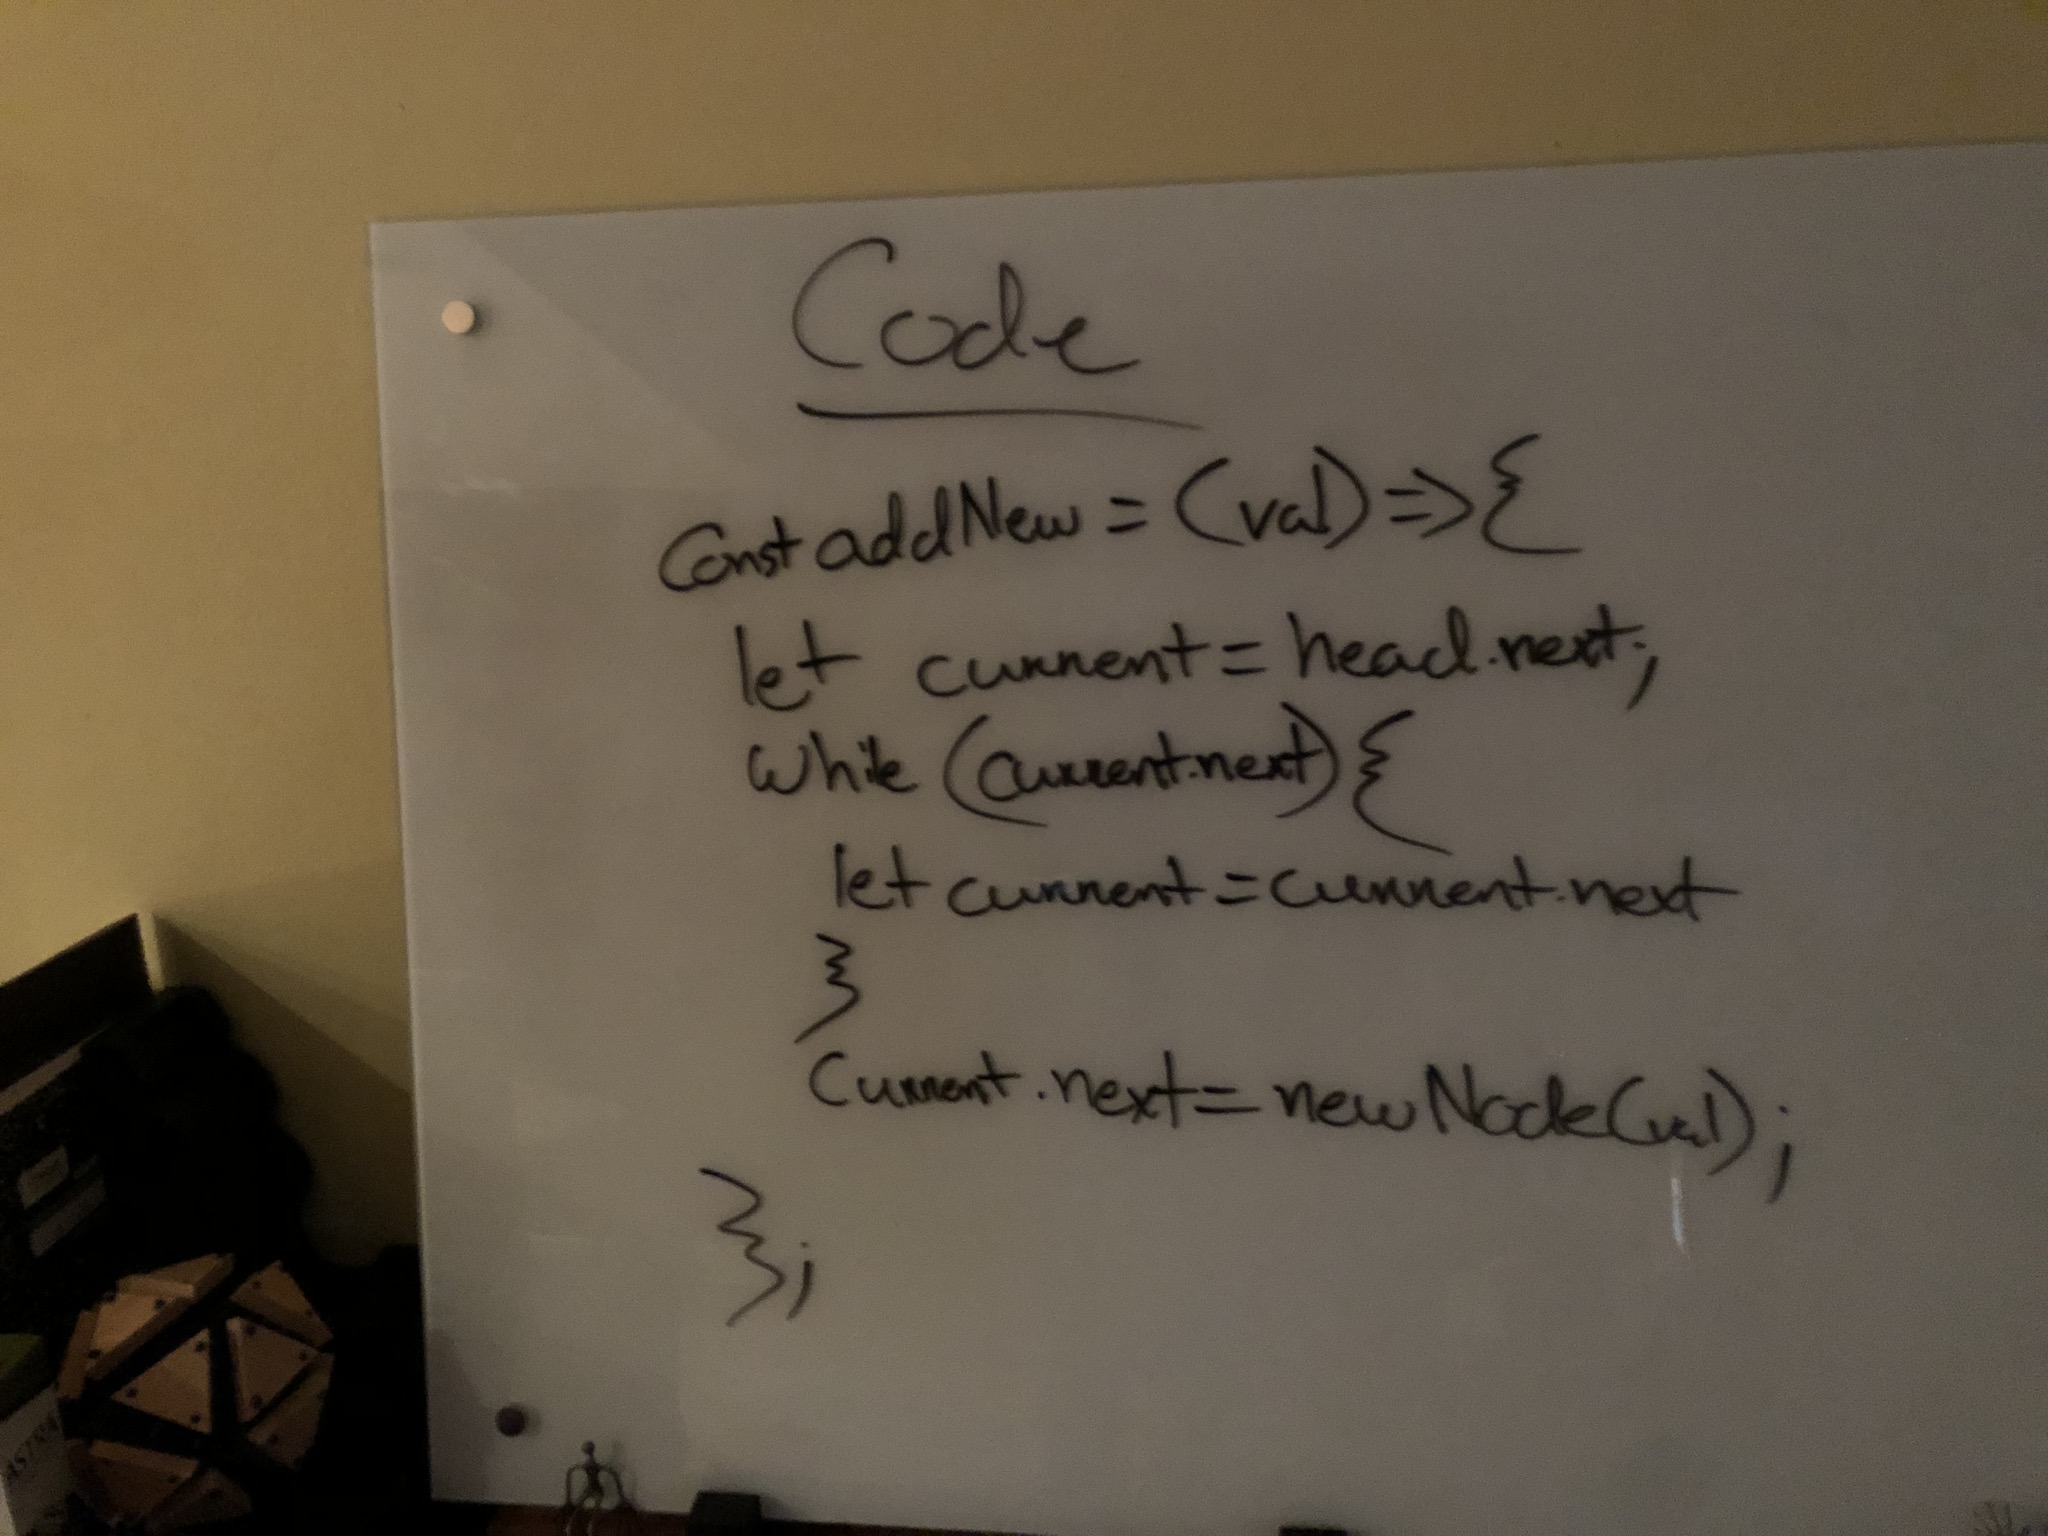 Code
const addNew = (val) => {
let current = head.next;
while (current.next) {
let current = current.next
}
current.next = new Node(val);
};
ASTRA